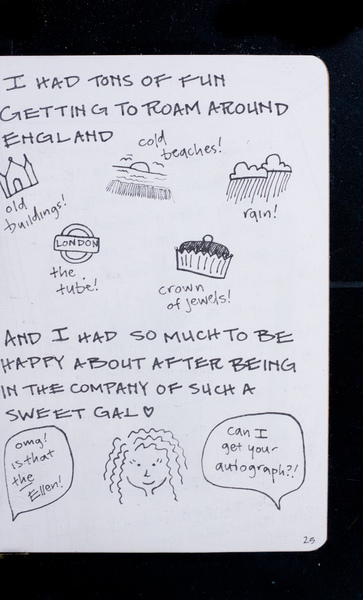 I HAD TONS OF FUN
GETTING TO ROAM AROUND
ENGLAND
cold
beaches!
old
buildings!
rain!
LONDON
the
tube!
crown
of jewels!
AND I HAD SO MUCH TO BE
HAPPY ABOUT AFTER BEING
IN THE COMPANY OF SUCH A
SWEET GAL ♡
omg!
is that
the
Ellen!
can I
get your
autograph?!
25